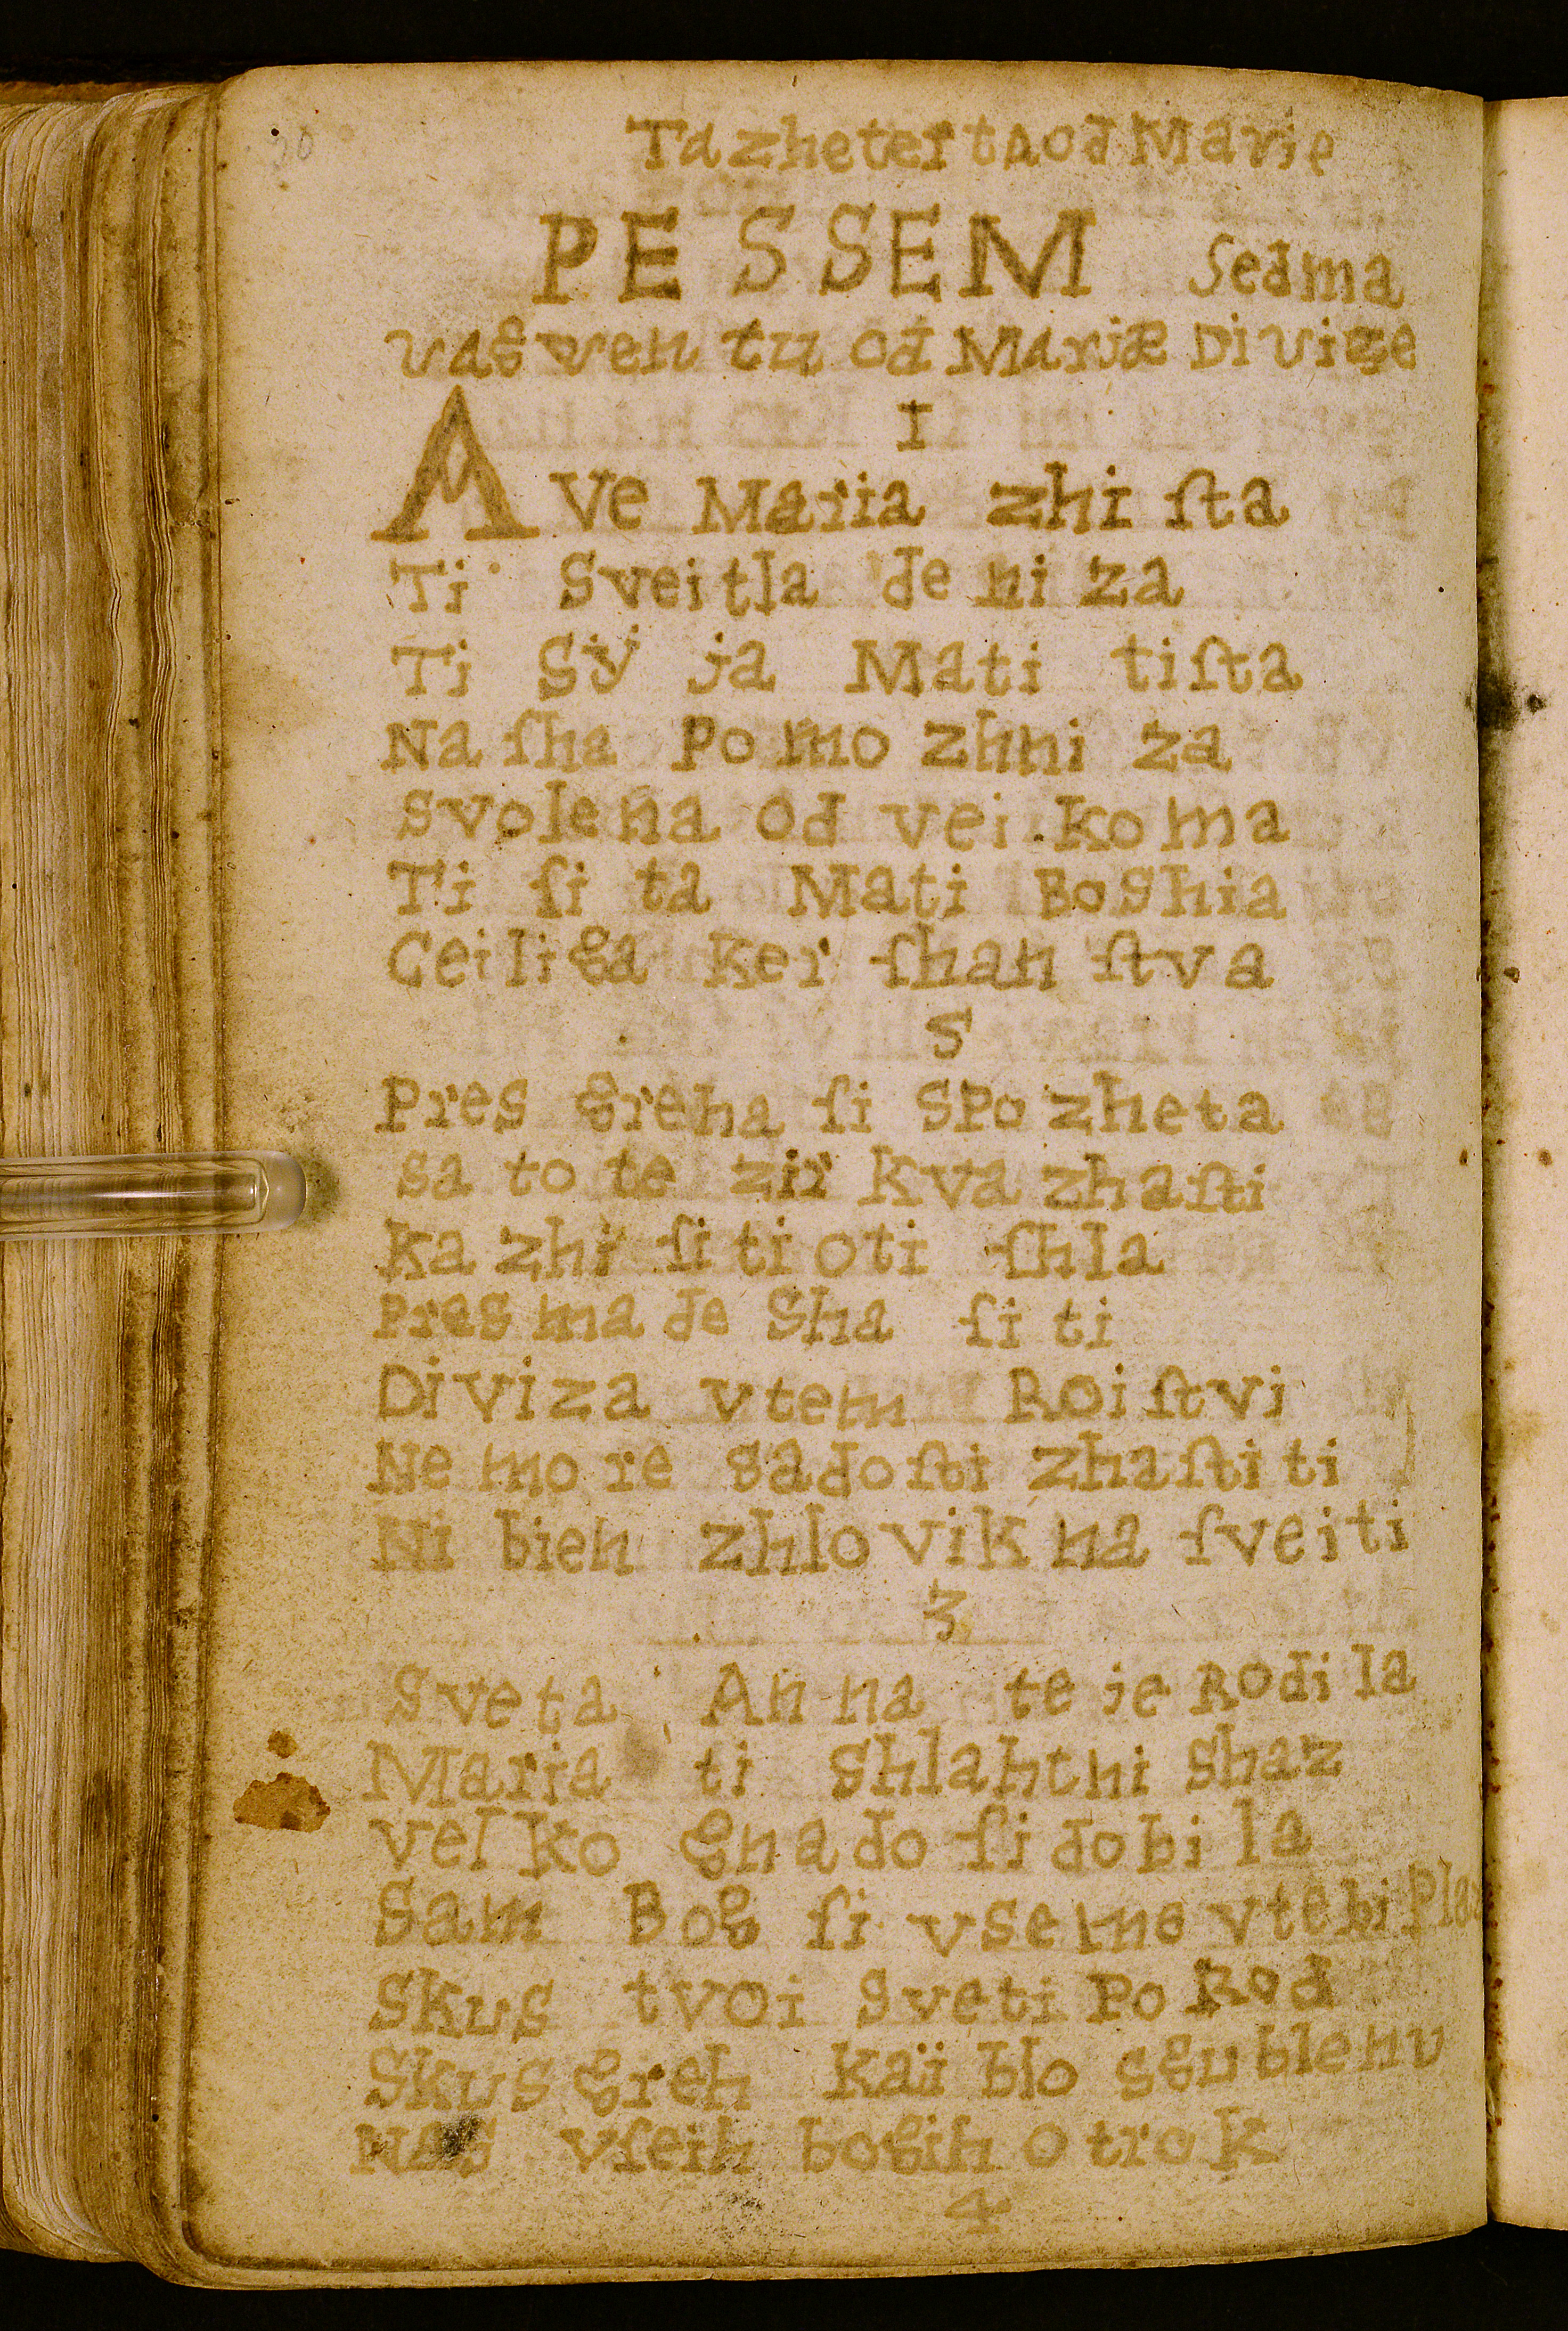 20
Ta zheterta od Marie
PESSEM Sedma
vasventu od Mariæ Divize
I
Ave Maria zhi ſta
Ti Sveitla de ni za
Ti Sÿ ja Mati tiſta
Na ſha Po mo zhni za
Svolena od vei koma
Ti ſi ta Mati Boshia
Ceiliga Ker ſhan ſtva
S
Pres greha ſi SPo zheta
sa to te zir kva zhaſti
Ka zhi ſi ti oti ſhla
Pres ma de Sha ſi ti
Diviza vtem Roi ſtvi
Ne mo re sadoſti zhaſti ti
Ni bieh zhlo vik na ſveiti
3
Sveta An na te je Rodi la
Maria ti shlahtni shaz
vel ko gna do ſi dobi la
Sam Bog ſi vseme vtebi
Skus tvoi sveti Po Rod
Skus greh kaï blo sgublenu
Nas vſeih bogih o trok
4